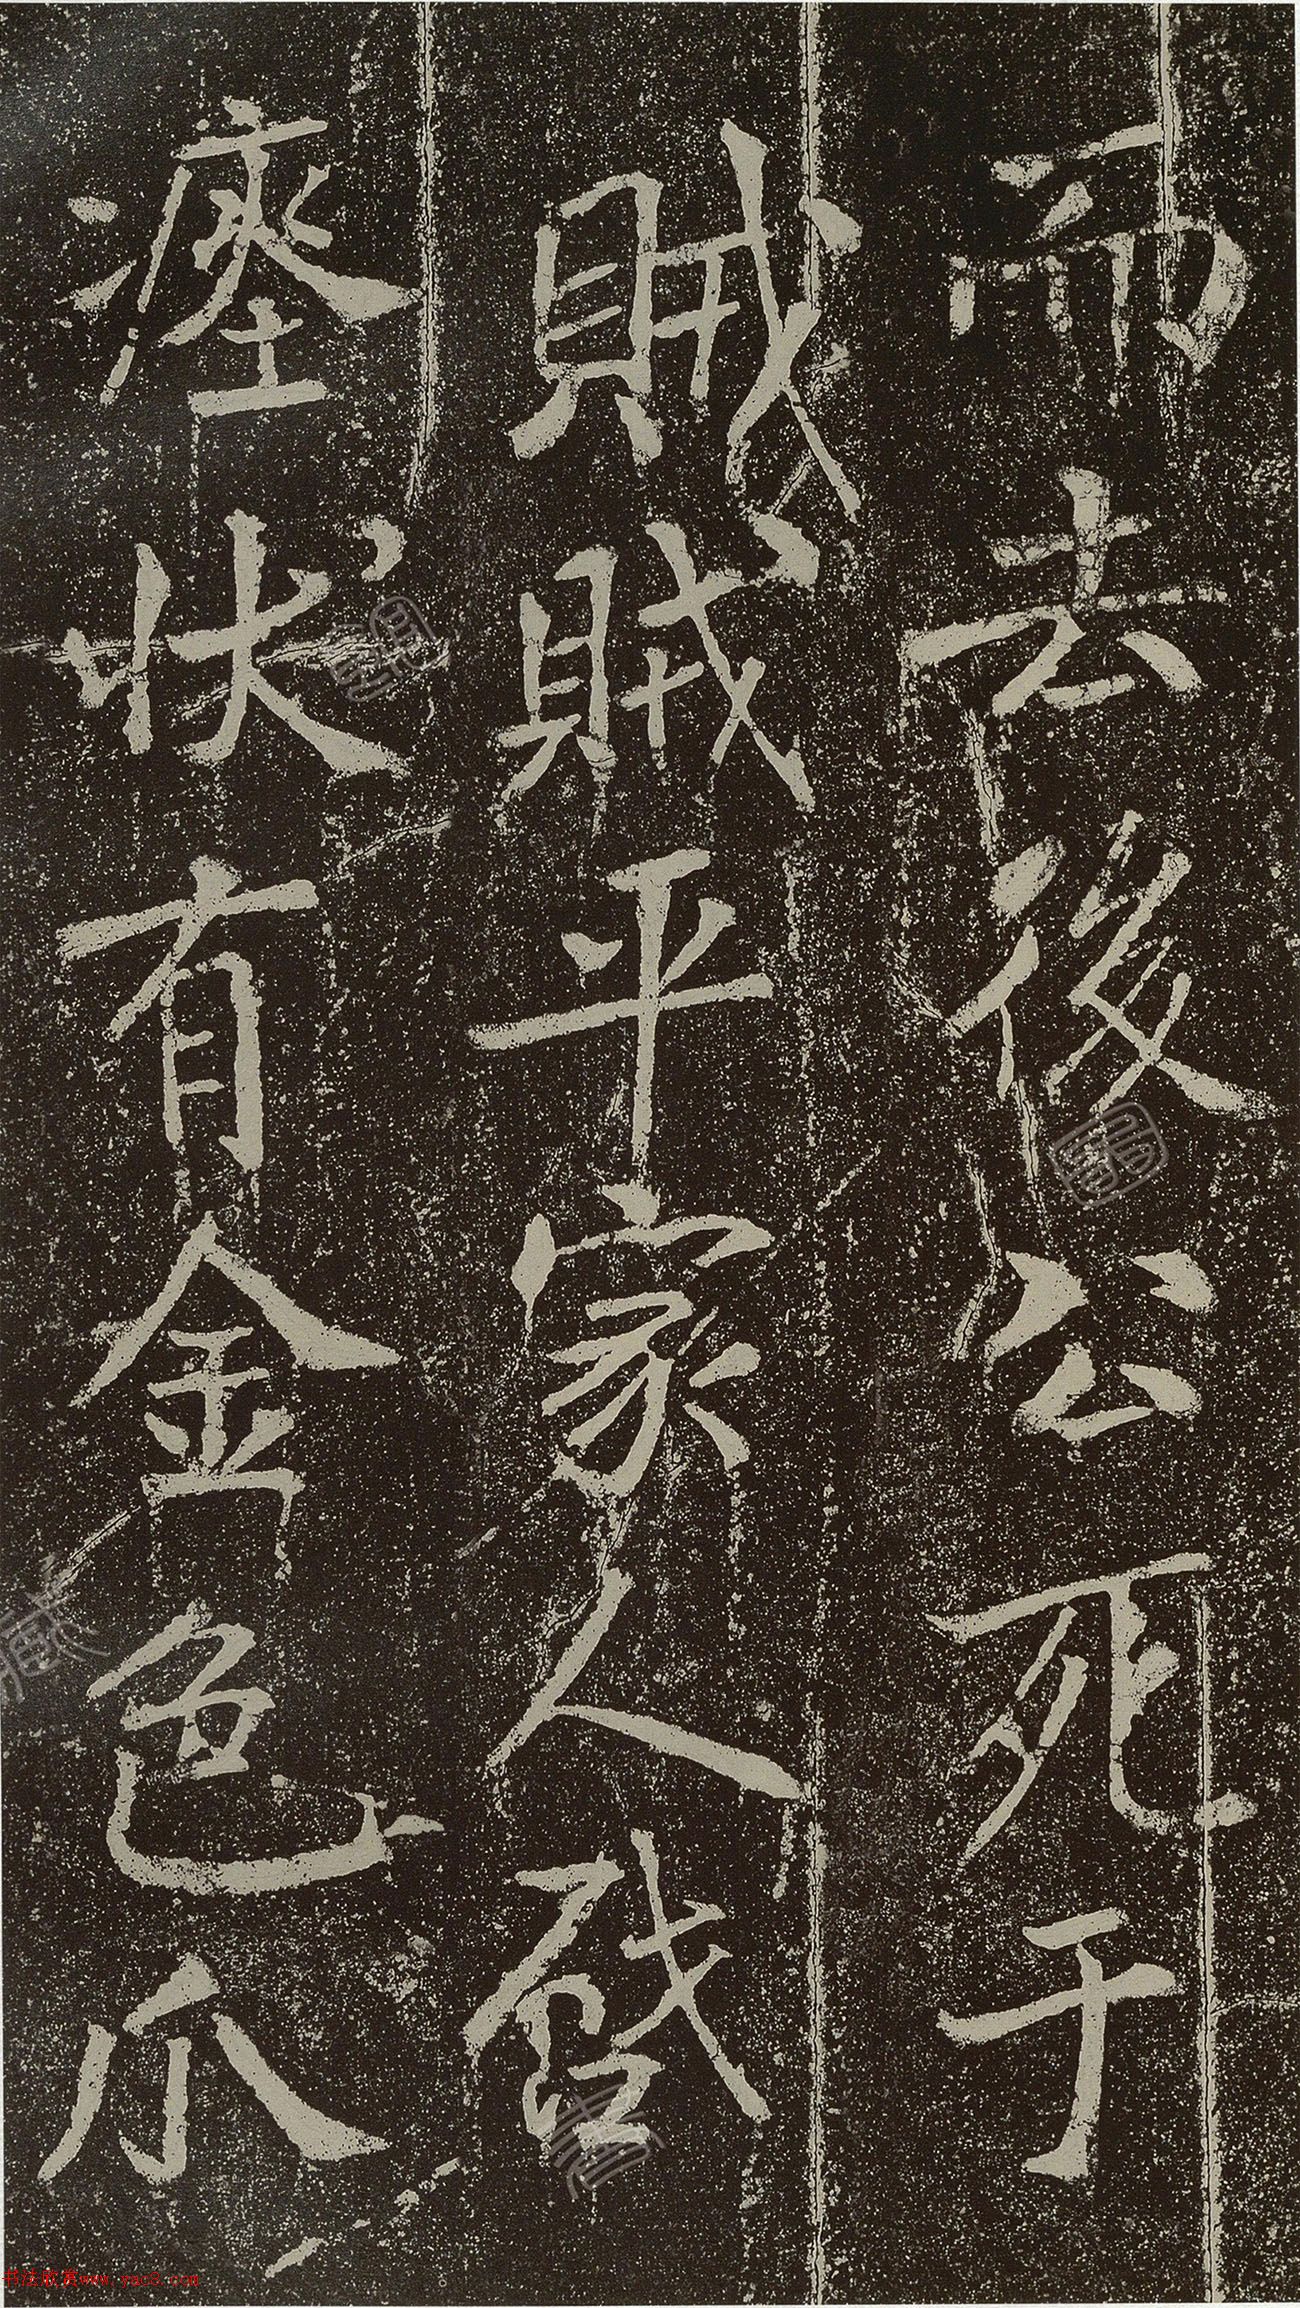 而去後公死于
賊賊平家人啟
瘞狀有金色爪
书法欣赏www.yac8.com